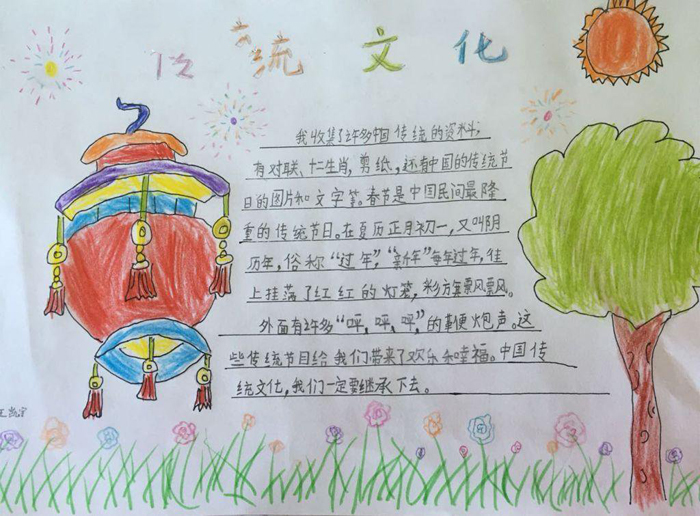 传统文化
我收集了许多中国传统的资料,
有对联、十二生肖,剪纸,还有中国的传统节
日的图片和文字等。春节是中国民间最隆
重的传统节日。在夏历正月初一,又叫阴
历年,俗称“过年”,“新年”每年过年,街
上挂满了红红的灯笼,彩旗飘飘。
外面有许多“呯,呯,呯”的鞭炮声。这
些传统节目给我们带来了欢乐和幸福。中国传
统文化,我们一定要继承下去。